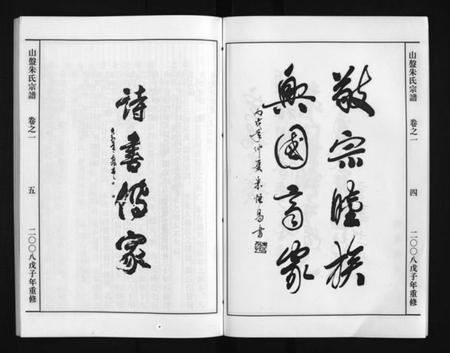 山盤朱氏宗譜 卷之一 四 二〇〇八戊子年重修
敬宗睦族
興國齊家
诗書傳家
山盤朱氏宗譜 卷之一 五 二〇〇八戊子年重修